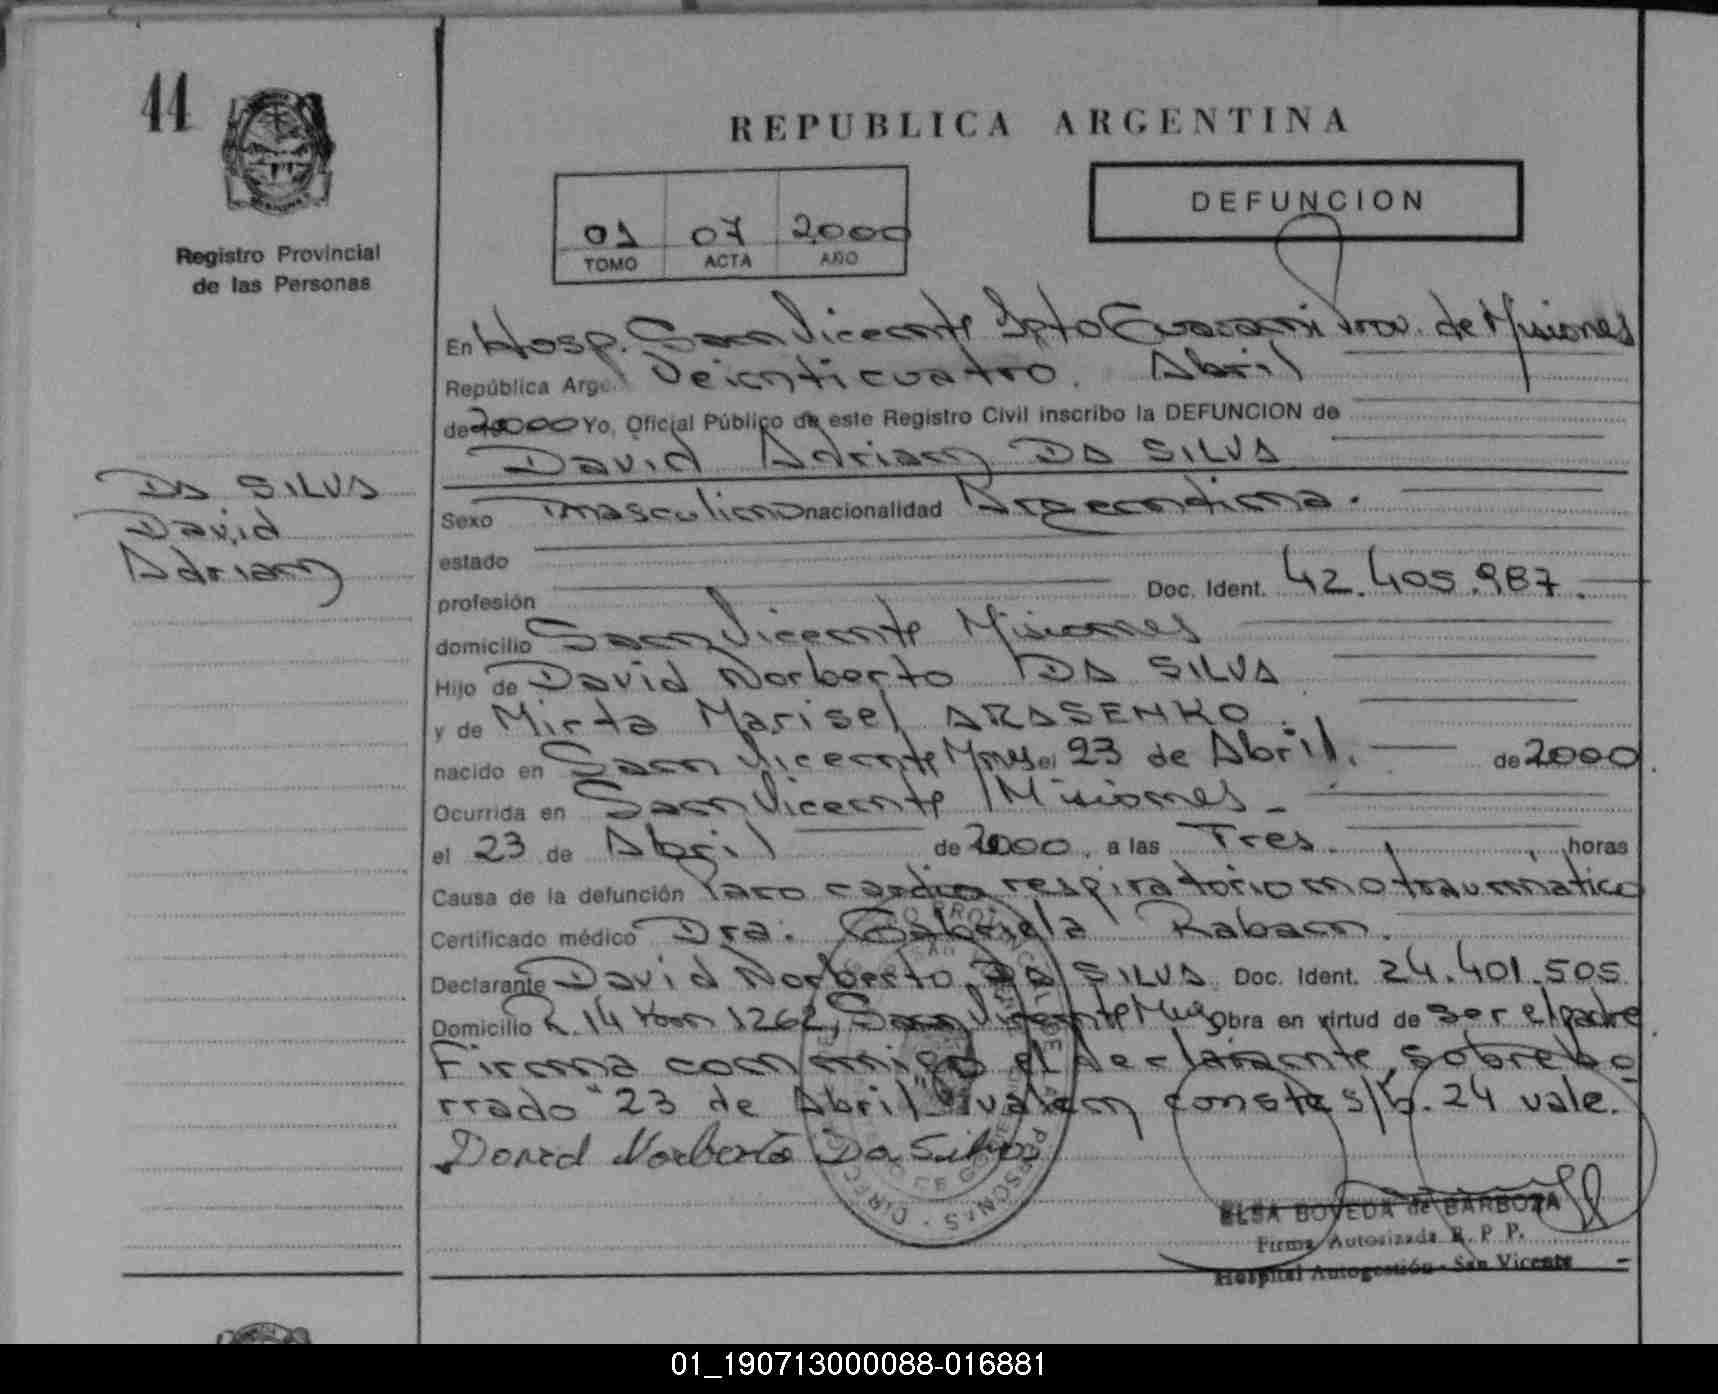 11
REPUBLICA ARGENTINA
DEFUNCION
01 07 2000
TOMO ACTA AÑO
Registro Provincial
de las Personas
En Hosp. San Vicente Dpto Guarani Prov. de Misiones
República Arge. Veinticuatro. Abril
de 2000 Yo, Oficial Público de este Registro Civil inscribo la DEFUNCION de
David Adrian DA SILVA
DA SILVA
David
Adrian
Sexo masculino nacionalidad Argentina.
estado
profesión Doc. Ident. 42.405.987.
domicilio San Vicente Misiones
Hijo de David Norberto DA SILVA
y de Mirta Marisel ARASENKO.
nacido en San Vicente Mnes el 23 de Abril. de 2000.
Ocurrida en San Vicente Misiones -
el 23 de Abril de 2000, a las Tres. horas
Causa de la defunción Paro cardio respiratorio no traumatico
Certificado médico Dra. Gabriela Raban.
Declarante David Norberto DA SILVA Doc. Ident. 24.401.505
Domicilio R. 14 Km 1262, San Vicente Obra en virtud de ser el padre.
Firma conmigo el declarante, sobrebo
rrado "23 de Abril" valen conste s/b. 24 vale.
David Norberto Da Silva
ELSA BOVEDA de BARBOZA
Firma Autorizada R. P. P.
Hospital Autogestión - San Vicente
01_190713000088-016881